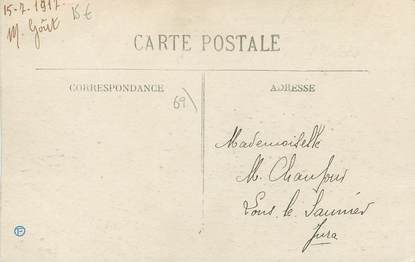 15-7-1917 15 €
M. Goût
CARTE POSTALE
CORRESPONDANCE
ADRESSE
69
Mademoiselle
M. Chanfour
Lons le Saunier
Jura